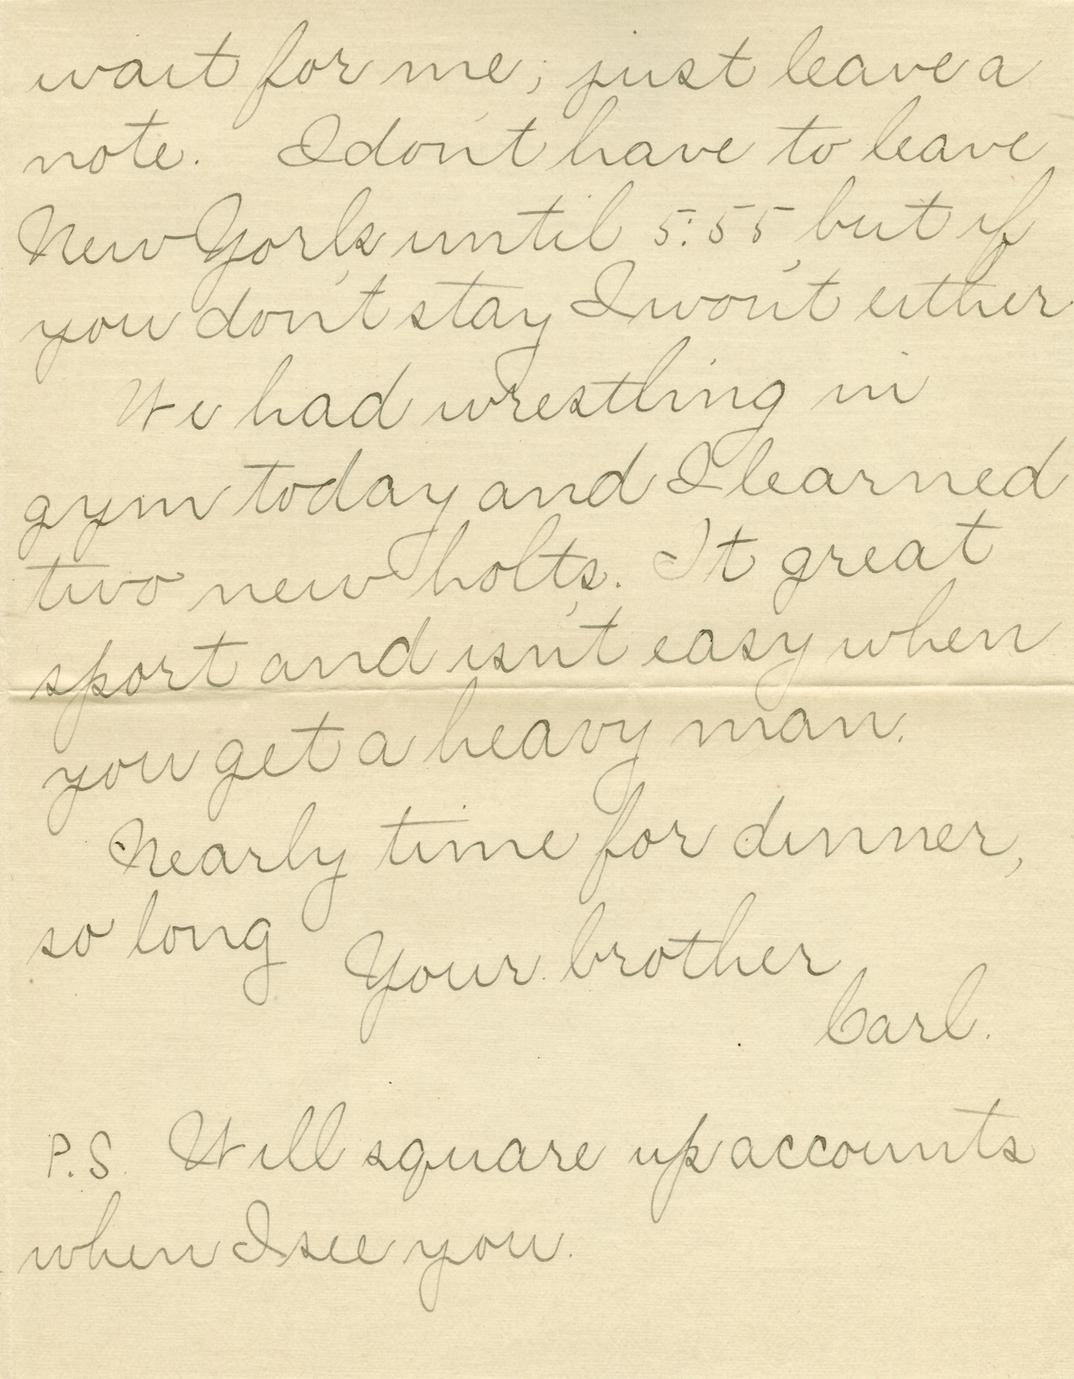 wait for me; just leave a
note. I don't have to leave
New York until 5:55, but if
you don't stay I won't either
We had wrestling in
gym today and I learned
two new holts. It great
sport and isn't easy when
you get a heavy man.
Nearly time for dinner,
so long
Your brother
Carl.
P.S. Will square up accounts
when I see you.